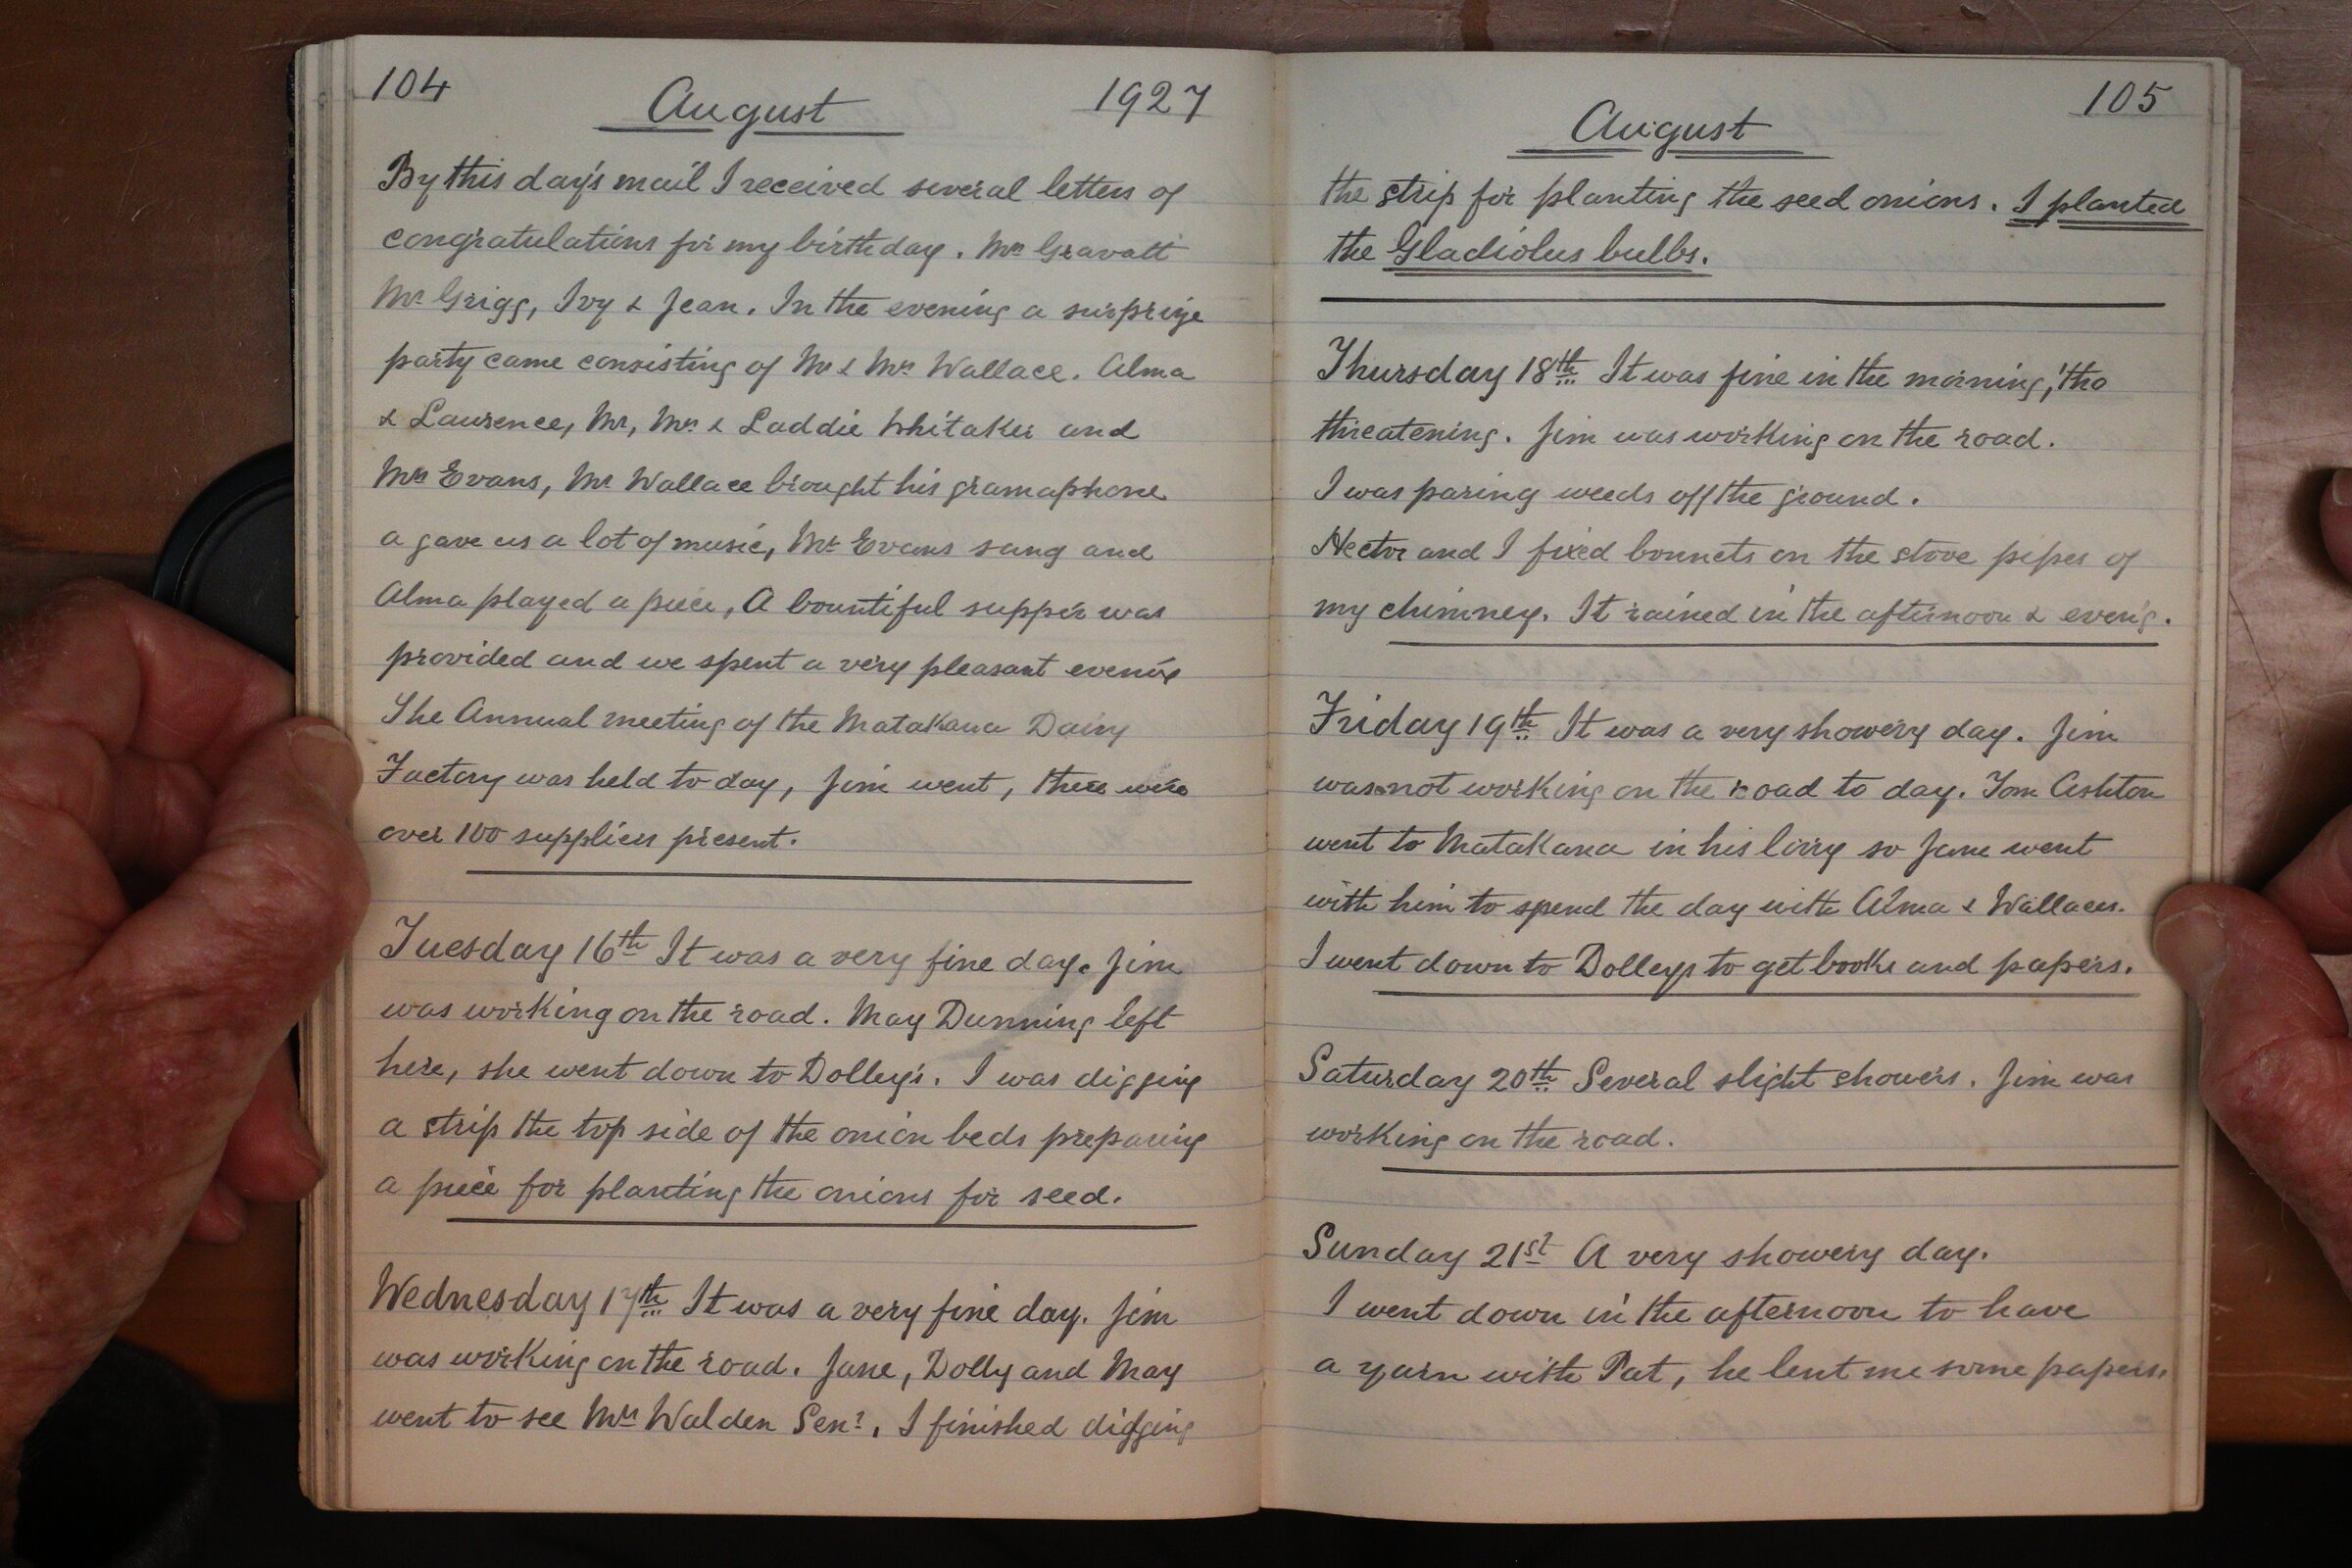 104
August
1927
By this day's mail I received several letters of
congratulations for my birthday. Mrs Gravatt
Mr Grigg, Ivy & Jean. In the evening a surprize
party came consisting of Mr & Mrs Wallace. Alma
& Laurence, Mr, Mrs & Laddie Whitaker and
Mrs Evans, Mr Wallace brought his gramaphone
a gave us a lot of music, Mr Evans sang and
Alma played a piece, A bountiful supper was
provided and we spent a very pleasant evening
The Annual meeting of the Matakana Dairy
Factory was held to day, Jim went, there were
over 100 suppliers present.
Tuesday 16th It was a very fine day. Jim
was working on the road. May Dunning left
here, she went down to Dolley's. I was digging
a strip the top side of the onion beds preparing
a piece for planting the onions for seed.
Wednesday 17th It was a very fine day. Jim
was working on the road. Jane, Dolly and May
went to see Mrs Walden Senr. I finished digging
105
August
the strip for planting the seed onions. I planted
the Gladiolus bulbs.
Thursday 18th It was fine in the morning, 'tho
threatening. Jim was working on the road.
I was paring weeds off the ground.
Hector and I fixed bonnets on the stove pipes of
my chimney. It rained in the afternoon & even'g.
Friday 19th It was a very showery day. Jim
was not working on the road to day. Tom Ashton
went to Matakana in his lorry so Jane went
with him to spend the day with Alma & Wallaces.
I went down to Dolleys to get books and papers.
Saturday 20th Several slight showers. Jim was
working on the road.
Sunday 21st A very showery day.
I went down in the afternoon to have
a yarn with Pat, he lent me some papers.